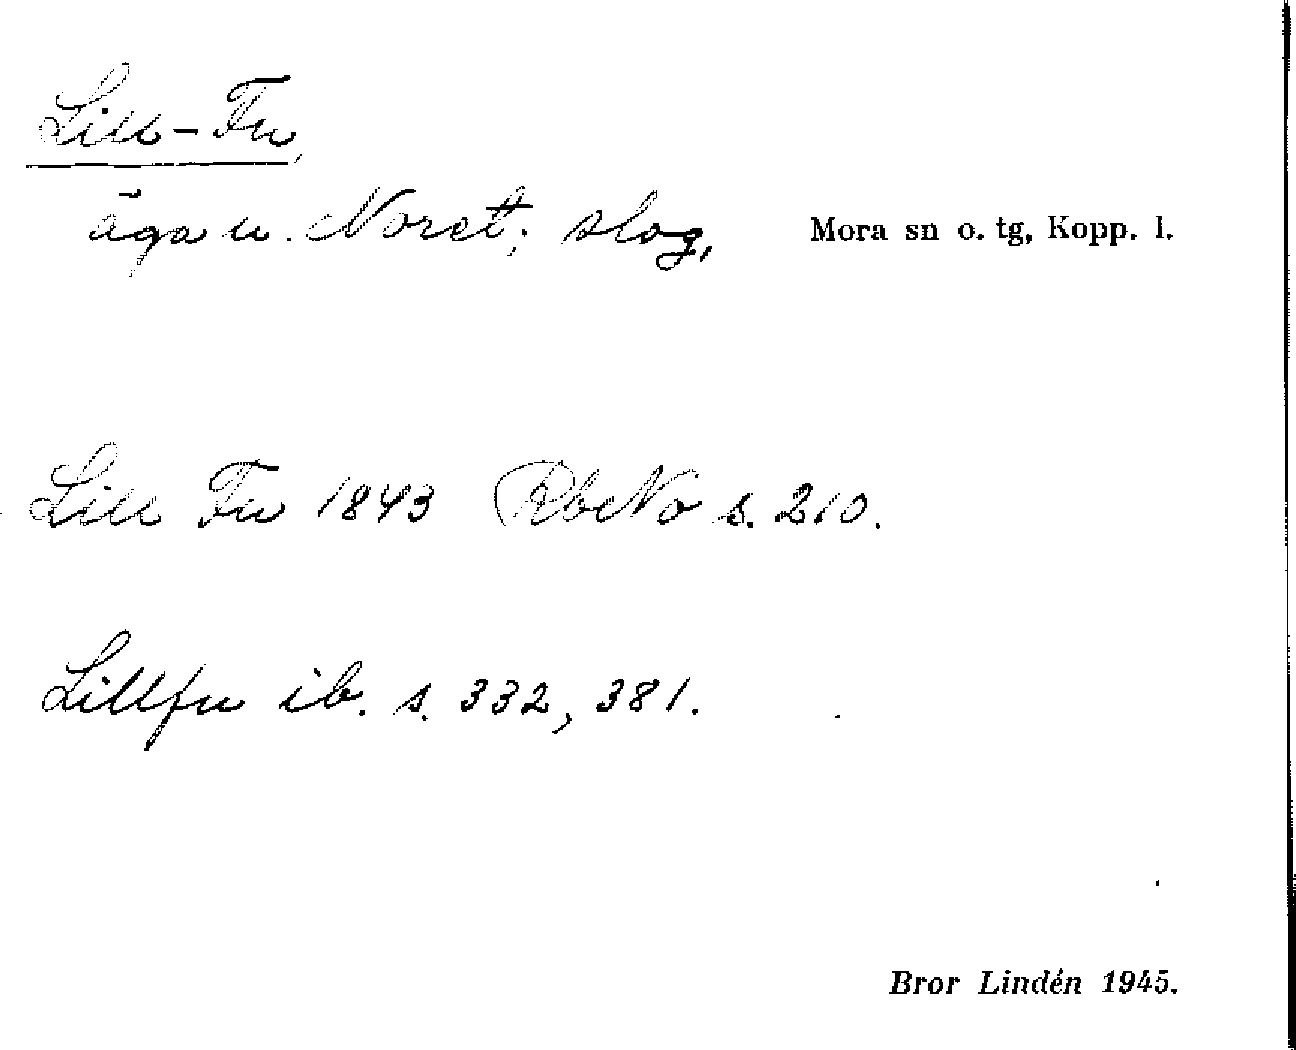 Lill-Fu,
äga u. Noret; slog, Mora sn o. tg, Kopp. l.
Lill Fu 1843 RbNo s. 210.
Lillfu ib. s. 332, 381.
Bror Lindén 1945.